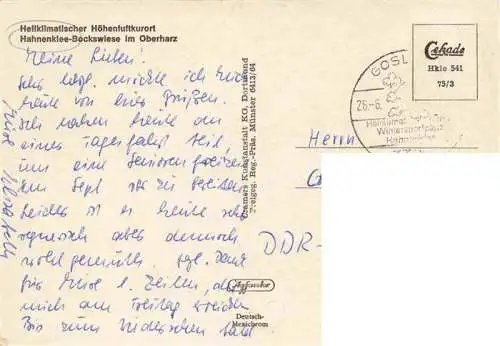 Heilklimatischer Höhenluftkurort
Hahnenklee-Bockswiese im Oberharz
Meine Lieben!
Sehr möchte ich Euch
heute von hier Grüßen.
Ich nahm heute an
einer Tagesfahrt teil,
um eine Seniorenfreizeit
im Sept. vor zu
Leider ist es heute sehr
regnerisch aber dennoch
wohlgemuth. Dank
für Eure l. Zeilen, die
mich am Freitag erreichten
Bis zum Wiedersehen bald
Eure
Cramers Kunstanstalt KG, Dortmund
Freigeg. Reg.-Präs. Münster 6413/64
Cekade
Hkle 541
75/3
GOSL
26.-6.
Heilklimat
Wintersportplatz
Hahnenklee
Herrn
DDR-
Agfacolor
Deutsch-
Mexichrom